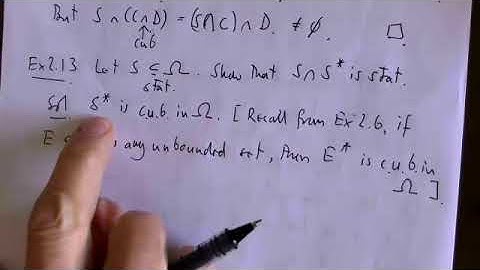 But S ∩ (C ∩ D) = (S ∩ C) ∩ D. ≠ ∅. □.
↑
cub
Ex 2.13. Let S ⊆ Ω. Show that S ∩ S* is stat.
stat.
Sol S* is c.u.b. in Ω. [Recall from Ex 2.6, if
E any unbounded set, then E* is c.u.b. in
Ω ].